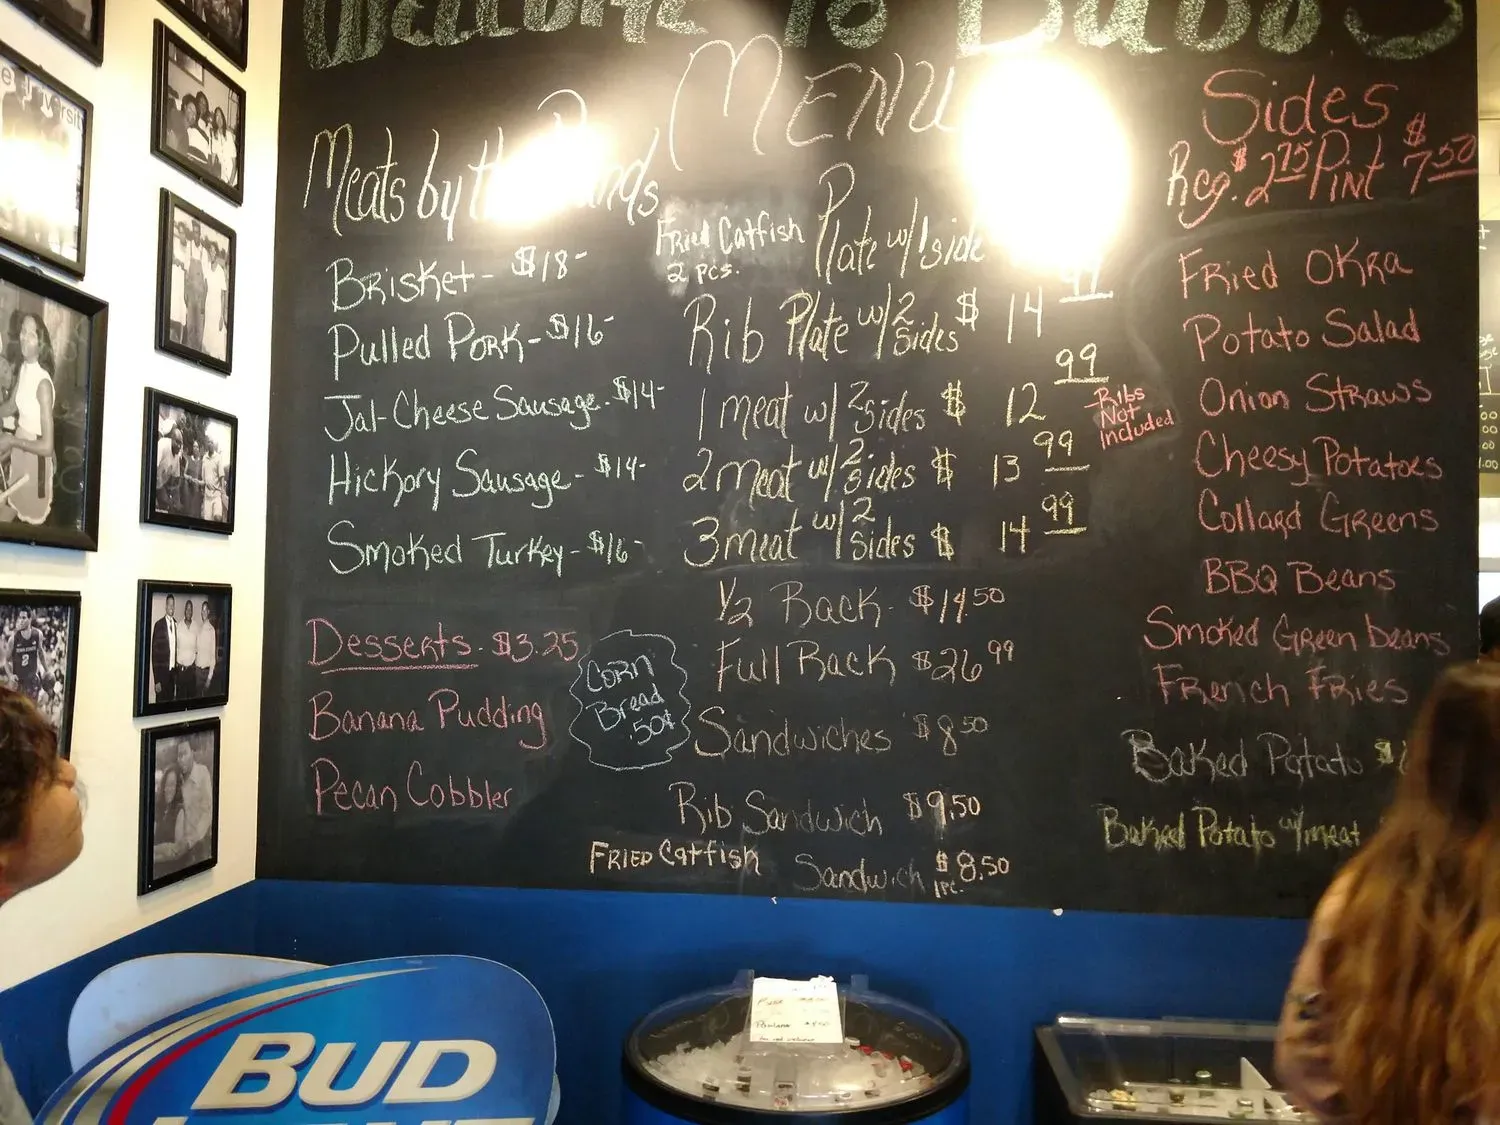 Welcome To Bubo's
MENU
Meats by the Pounds
Brisket - $18-
Pulled Pork - $16-
Jal-Cheese Sausage - $14-
Hickory Sausage - $14-
Smoked Turkey - $16-
Desserts - $3.25
Banana Pudding
Pecan Cobbler
Corn
Bread
.50¢
Fried Catfish
2 pcs.
Plate w/ 1 side
Rib Plate w/ 2 sides $ 14
1 meat w/ 2 sides $ 12 99
2 meat w/ 2 sides $ 13 99
3 meat w/ 2 sides $ 14 99
Ribs
Not
Included
1/2 Rack - $14.50
Full Rack $26 99
Sandwiches $8 50
Rib Sandwich $9.50
Fried Catfish Sandwich $8.50
1pc.
Sides
Reg. $2 75 Pint $7 50
Fried Okra
Potato Salad
Onion Straws
Cheesy Potatoes
Collard Greens
BBQ Beans
Smoked Green beans
French Fries
Baked Potato $
Baked Potato w/meat
BUD